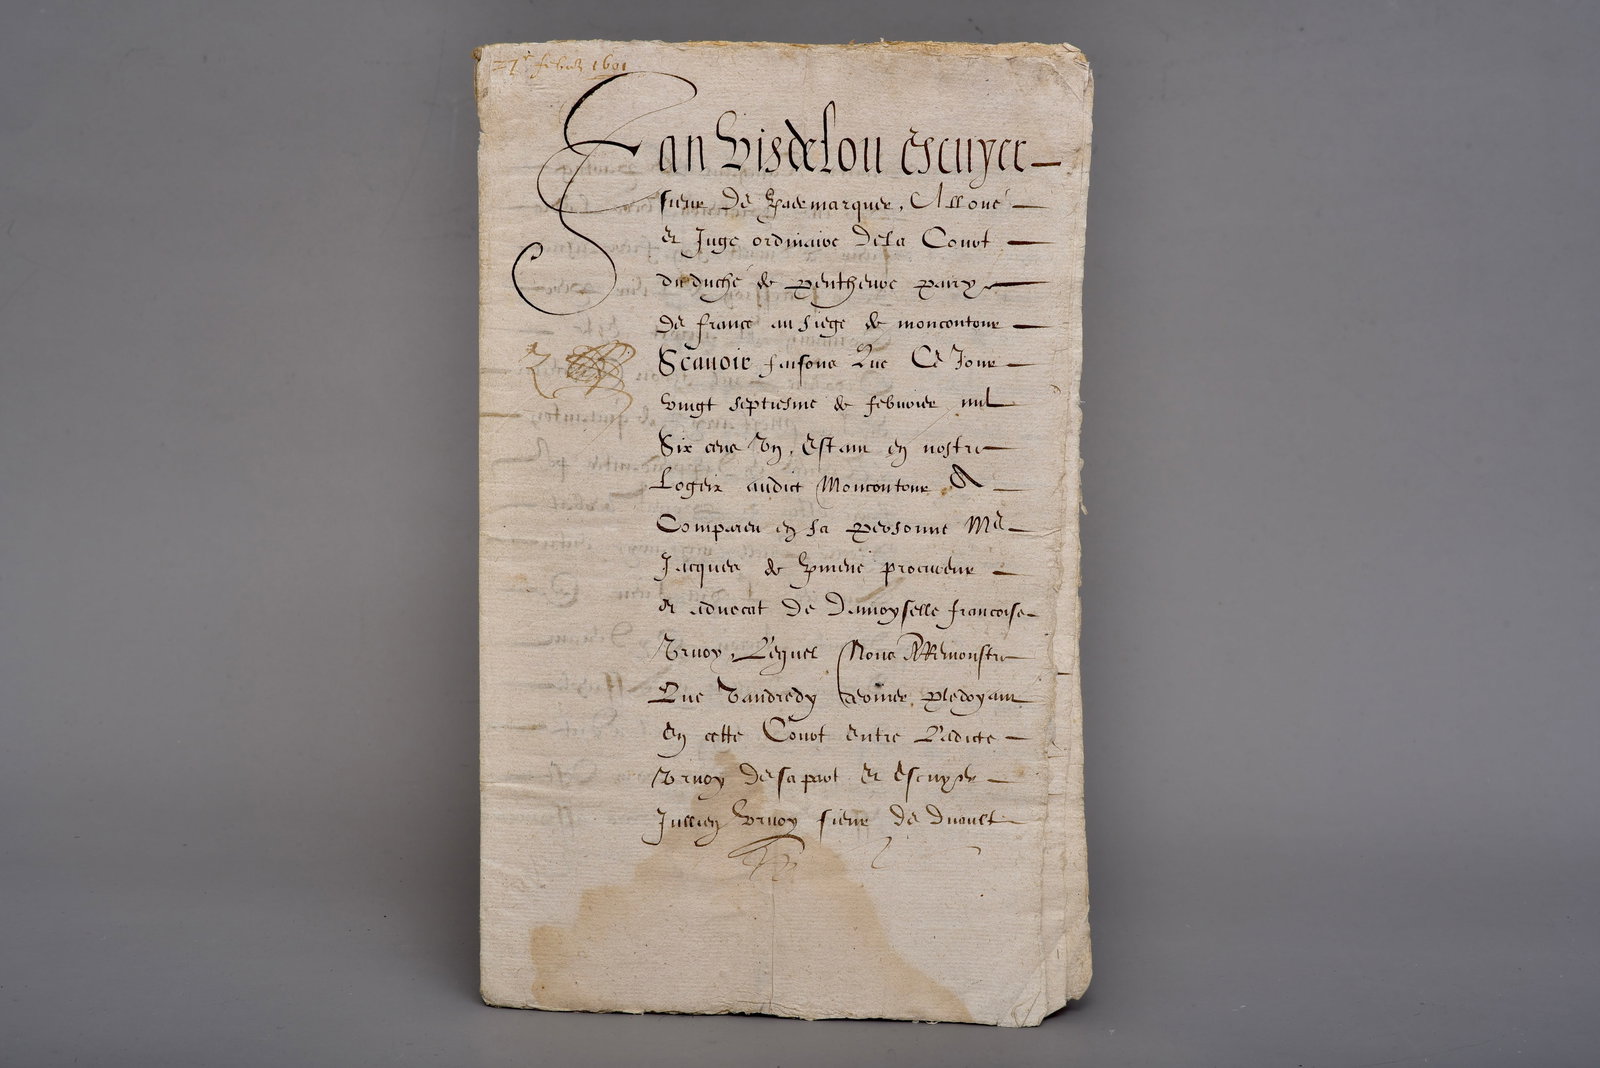 27e febvr 1601
Jan Visdelou escuyer
sieur de Kermarquer, Alloué
et Juge ordinaire de la Court
du duché de penthevre pairye
de france au siege de moncontour
Scavoir faisons Que Ce Jour
vingt septiesme de febvrier mil
Six cens Un, Estant en nostre
Logeix audict Moncontour A
Comparu en sa personne Me
Jacques de procureur
et advocat de damoyselle francoise
Urvoy, Lequel Nous A Remonstre
Que Vandredy dernier, pledoyant
En cette Court entre Ladicte
Urvoy de sa part Et Escuyer
Jullien Urvoy sieur de